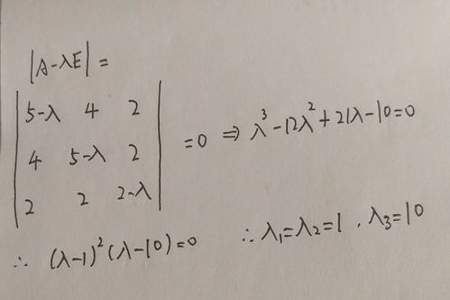 |A-λE|=
|5-λ 4 2|
|4 5-λ 2| =0 ⇒ λ³-12λ²+21λ-10=0
|2 2 2-λ|
∴ (λ-1)²(λ-10)=0 ∴ λ₁=λ₂=1 , λ₃=10